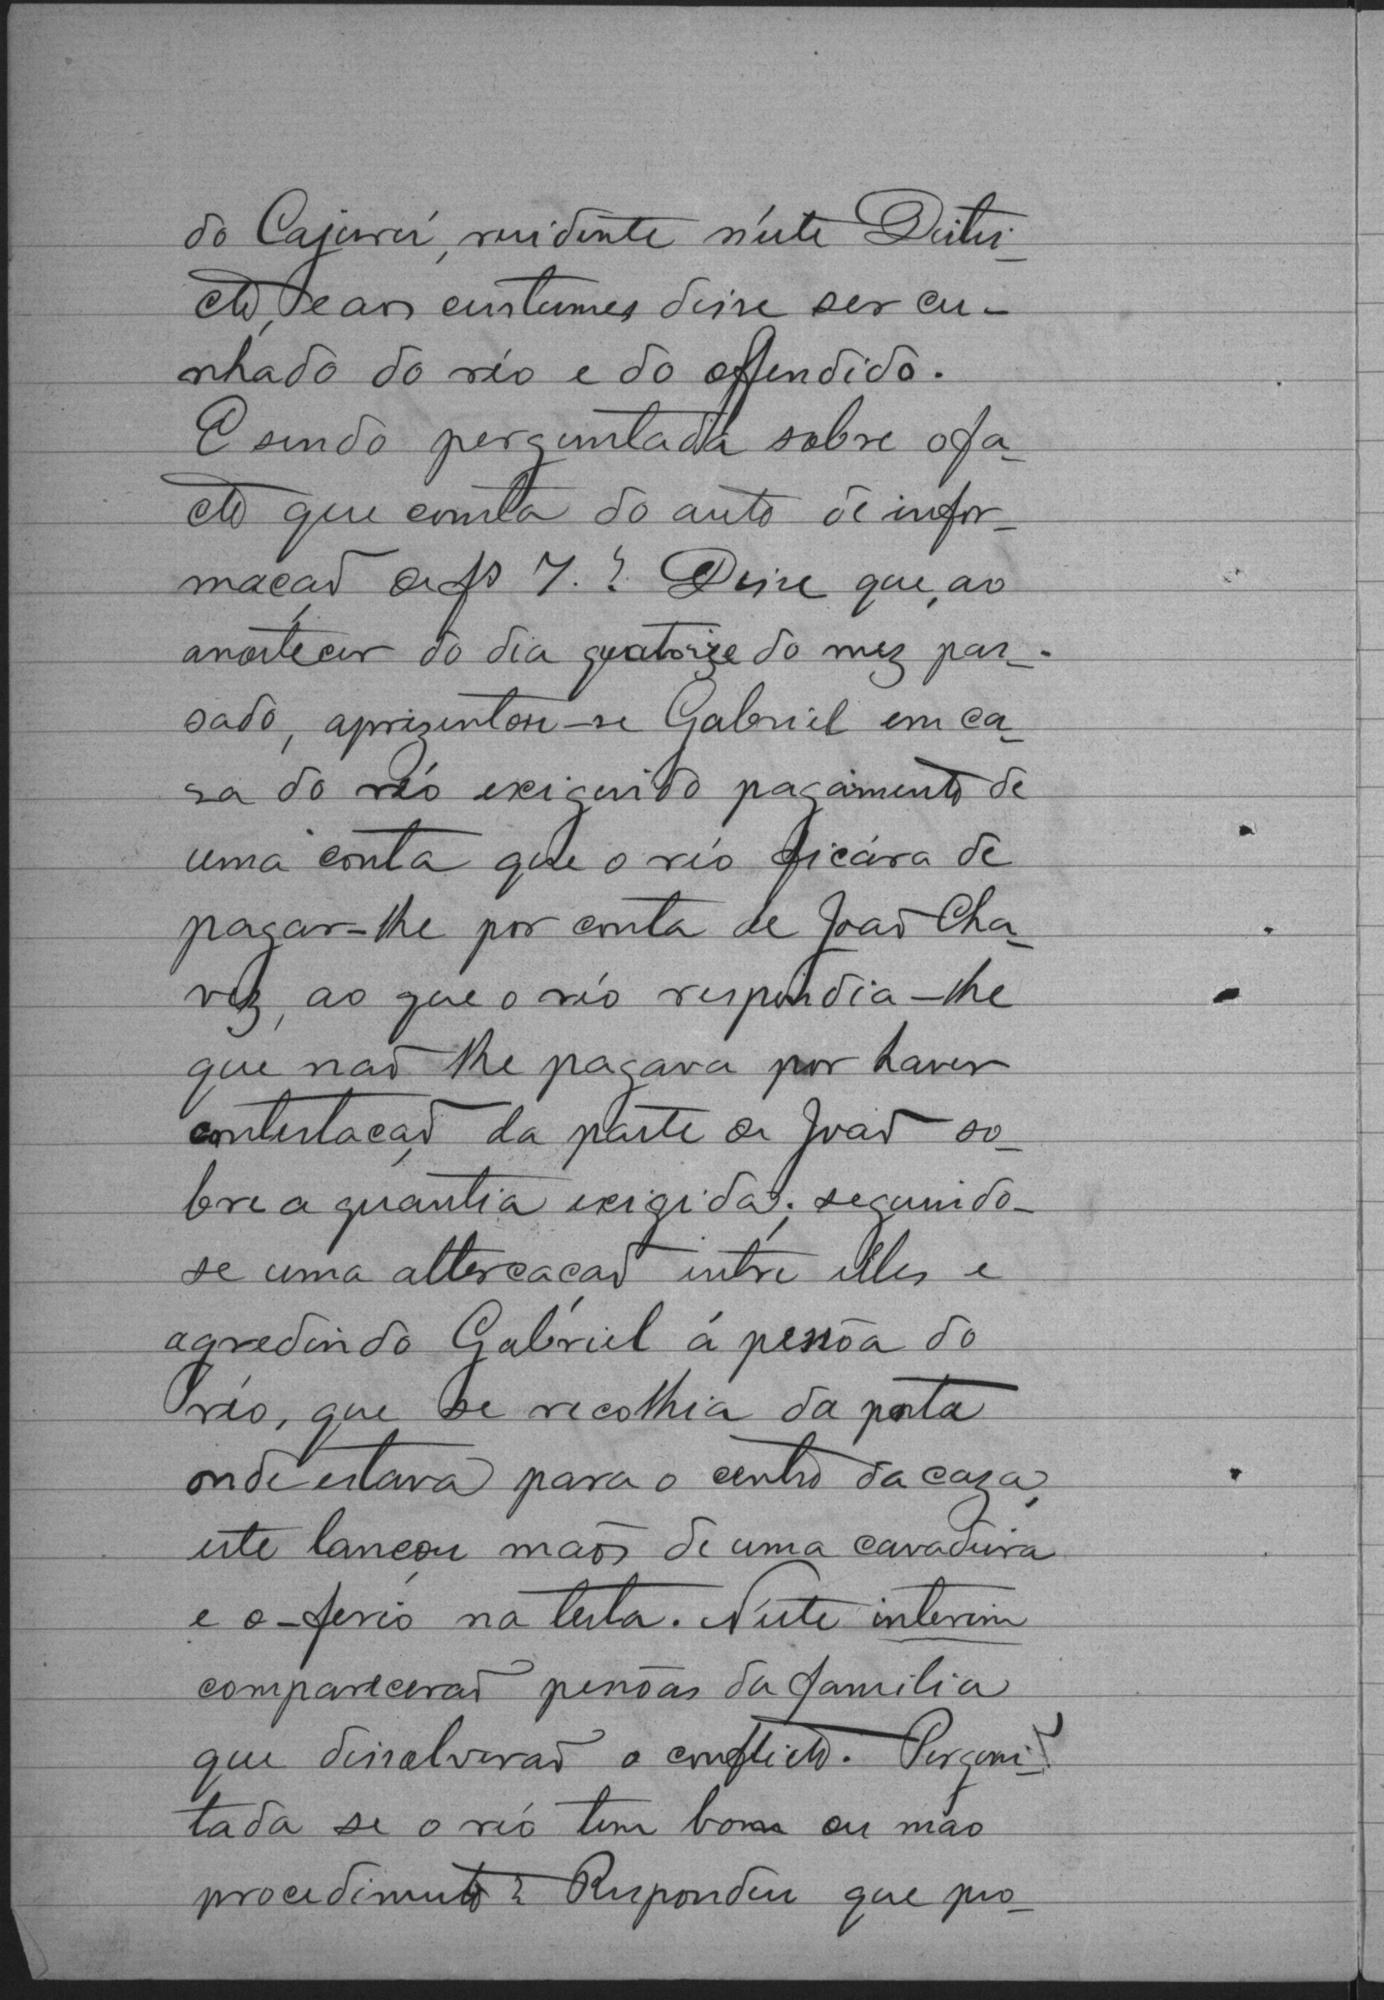 do Cajurú, residente n'este Distri-
cto, e aos custumes disse ser cu-
nhado do réo e do offendido.
E sendo perguntada sobre o fa-
cto que consta do auto de infor-
mação de fs 7.? Disse que, ao
anoitecer do dia quatorze do mez pas-
sado, aprizentou-se Gabriel em ca-
sa do réo exigindo pagamento de
uma conta que o réo ficára de
pagar-lhe por conta de João Cha-
vez, ao que o réo respondia-lhe
que não lhe pagava por haver
contestação da parte de João so-
bre a quantia exigida; seguindo-
se uma altercação entre elles e
agredindo Gabriel á pessôa do
réo, que se recolhia da porta
onde estava para o centro da caza,
este lançou mãos de uma cavadeira
e o-ferio na testa. N'este interim
comparecerão pessôas da familia
que dissolverão o conflicto. Pergun-
tada se o réo tem bom ou máo
procedimento? Respondeu que pro-